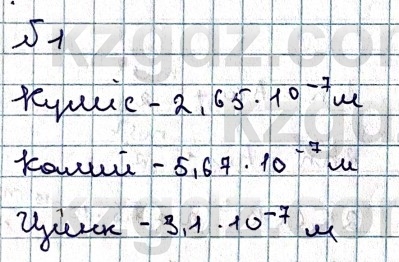 №1
Күміс - 2,65 · 10⁻⁷ м
Калий - 5,67 · 10⁻⁷ м
Цинк - 3,1 · 10⁻⁷ м
kzgdz.com